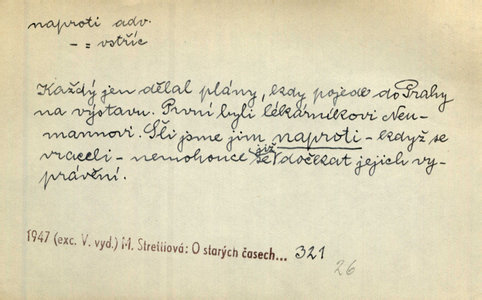 naproti adv.
— = vstříc
Každý jen dělal plány, kdy pojede do Prahy
na výstavu. První byli lékárníkovi Neu-
mannovi. Šli jsme jim naproti – když se
vraceli – nemohouce se již dočkat jejich vy-
právění.
1947 (exc. V. vyd.) M. Stretliová: O starých časech... 321
26